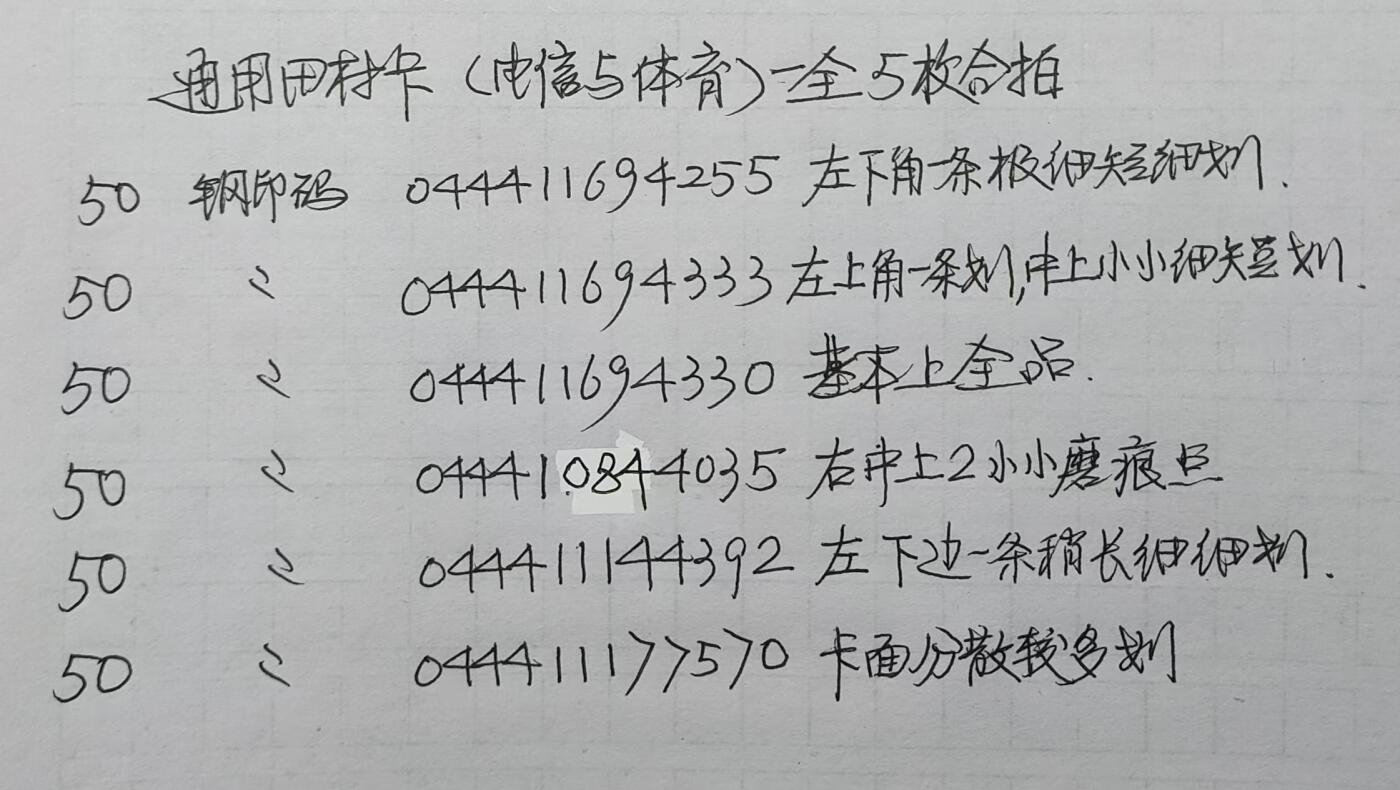 通用田村卡(电信与体育)一全5枚合拍
50 钢印码 044411694255 左下角一条极细短细划.
50 〃 044411694333 左上角一条划,中上小小细短划.
50 〃 044411694330 基本上全品.
50 〃 044410844035 右中上2小小磨痕点
50 〃 044411144392 左下边一条稍长细细划.
50 〃 044411177570 卡面分散较多划